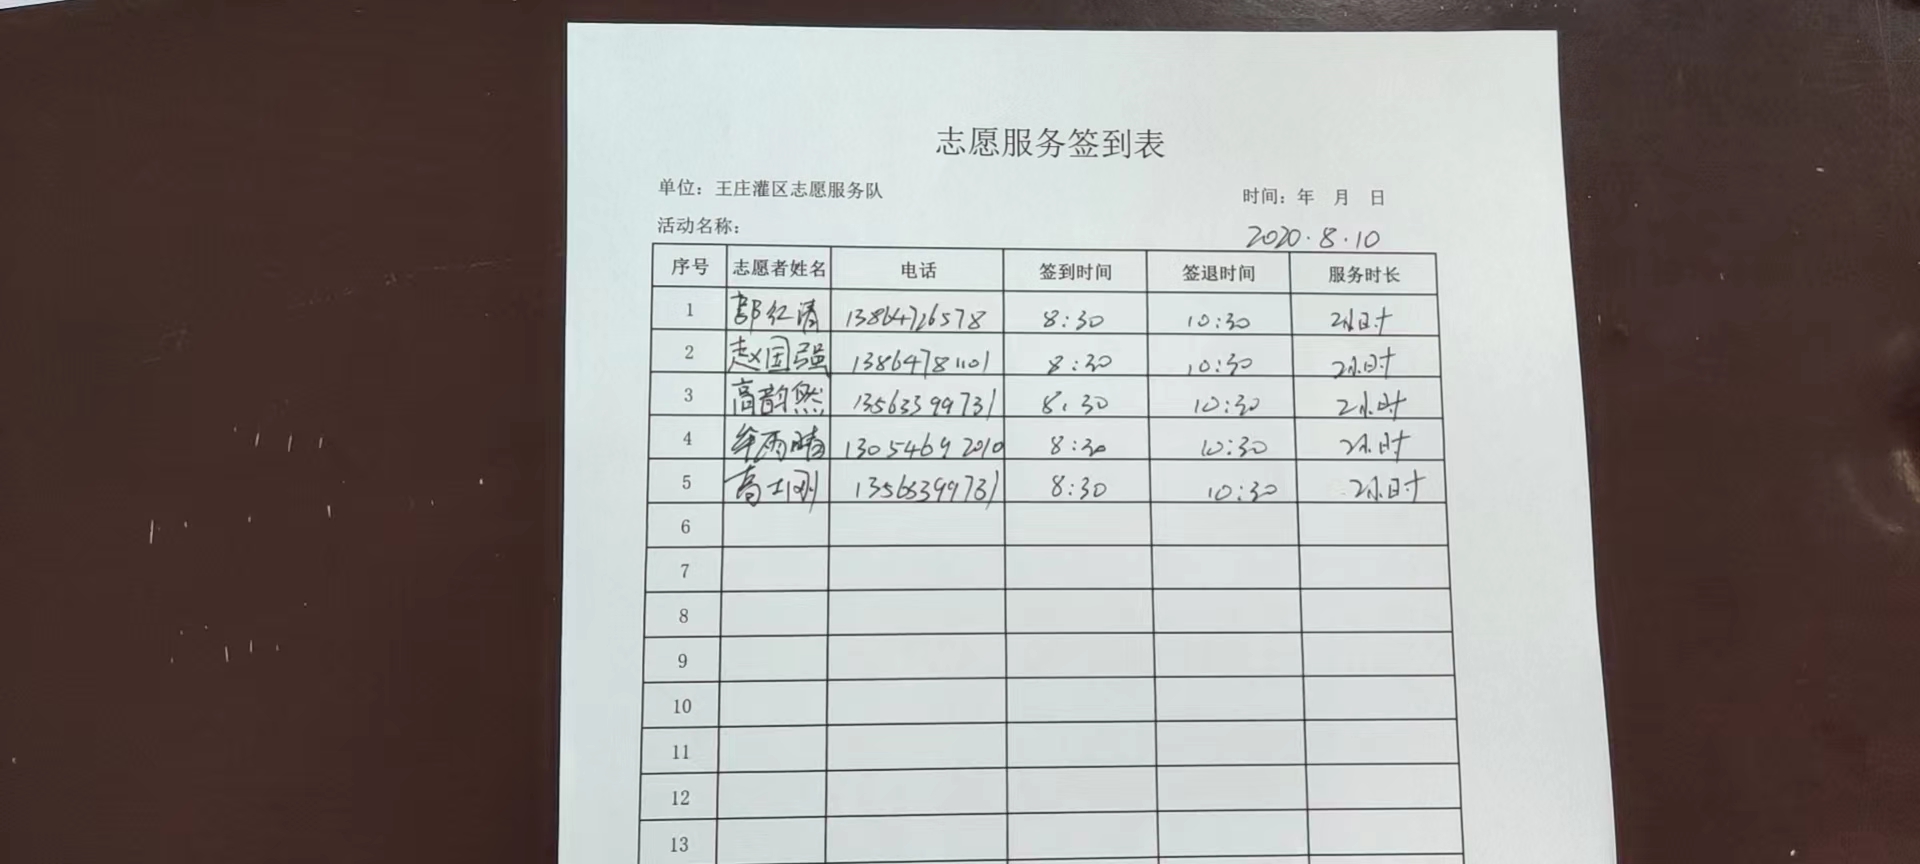 志愿服务签到表
单位：王庄灌区志愿服务队 时间：年 月 日
活动名称： 2020.8.10
序号 志愿者姓名 电话 签到时间 签退时间 服务时长
1 郭红清 13864726578 8:30 10:30 2小时
2 赵国强 13864781101 8:30 10:30 2小时
3 高韵然 13563399731 8:30 10:30 2小时
4 雨晴 13054692010 8:30 10:30 2小时
5 高士刚 13563399731 8:30 10:30 2小时
6
7
8
9
10
11
12
13